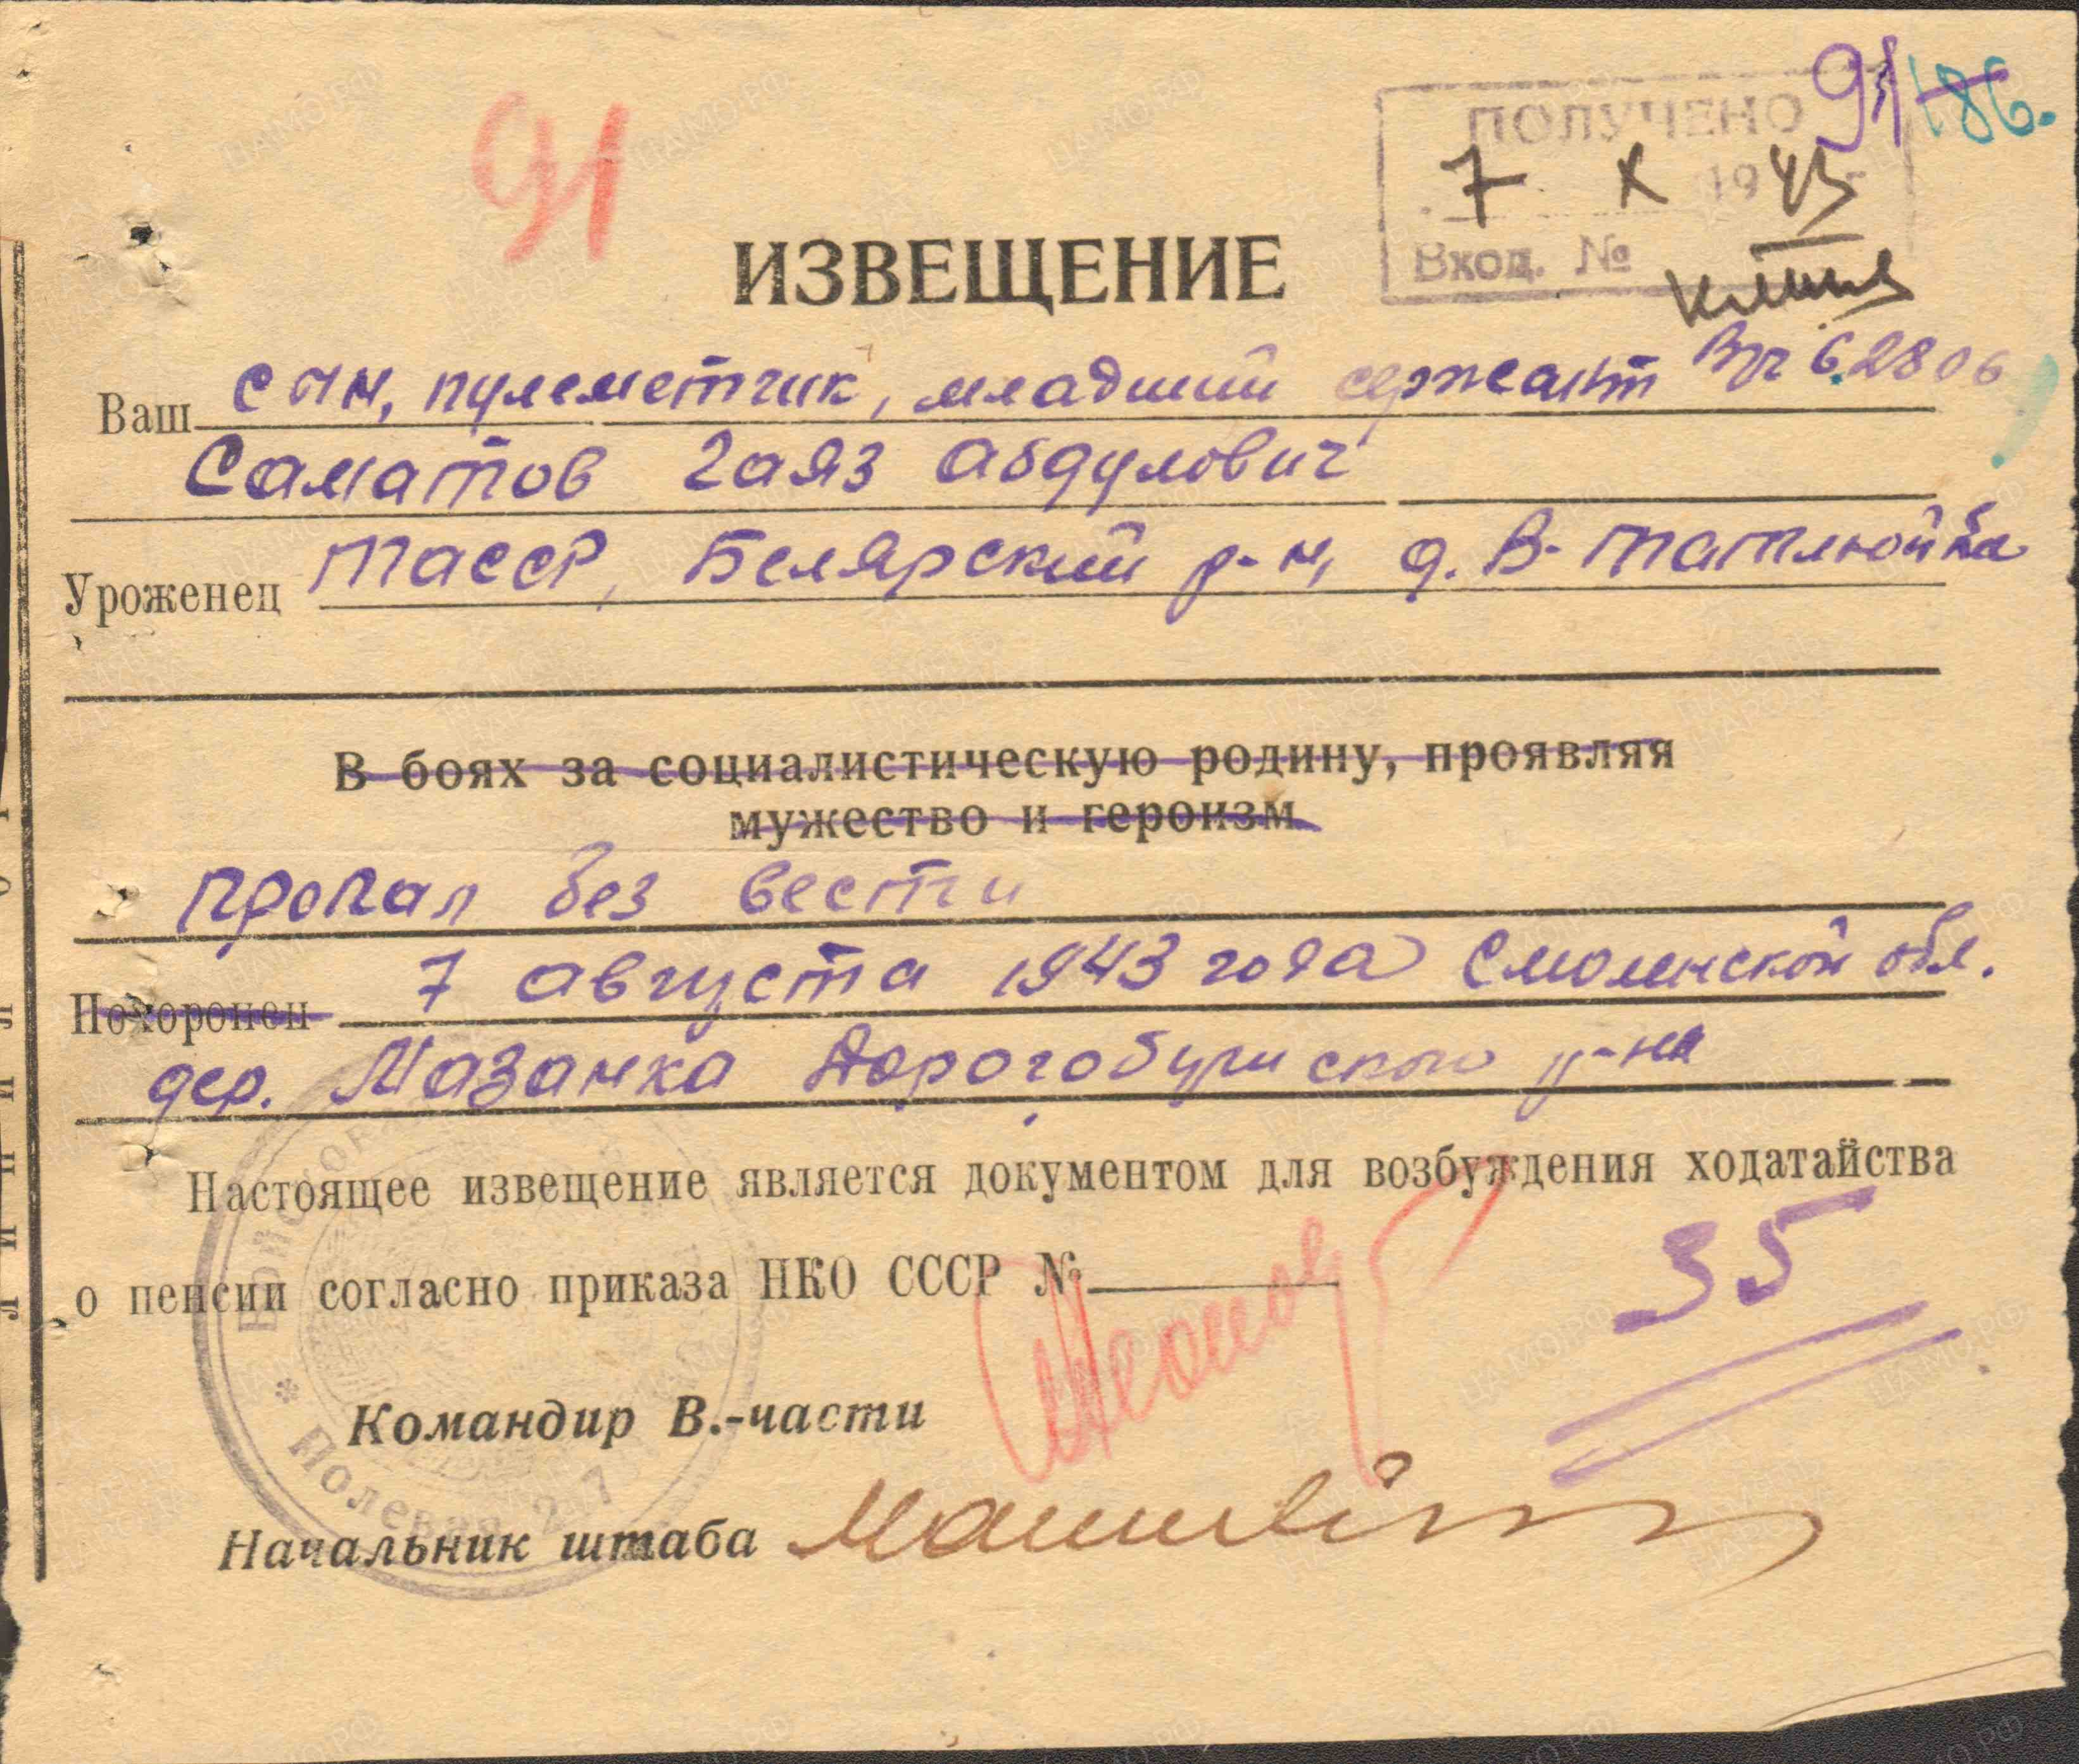 91
91 186.
ПОЛУЧЕНО
7 X 1943
Вход. №
ИЗВЕЩЕНИЕ
Ваш сын, пулеметчик, младший сержант
Саматов Гаяз Абдулович
Уроженец ТАССР, Белярский р-н, д. В-Татмюйка
В боях за социалистическую родину, проявляя
мужество и героизм
пропал без вести
Похоронен 7 августа 1943 года Смоленской обл.
дер. Мазанка Дорогобужского р-на
Настоящее извещение является документом для возбуждения ходатайства
о пенсии согласно приказа НКО СССР №
35
Командир В.-части
Начальник штаба
* Полевая 27